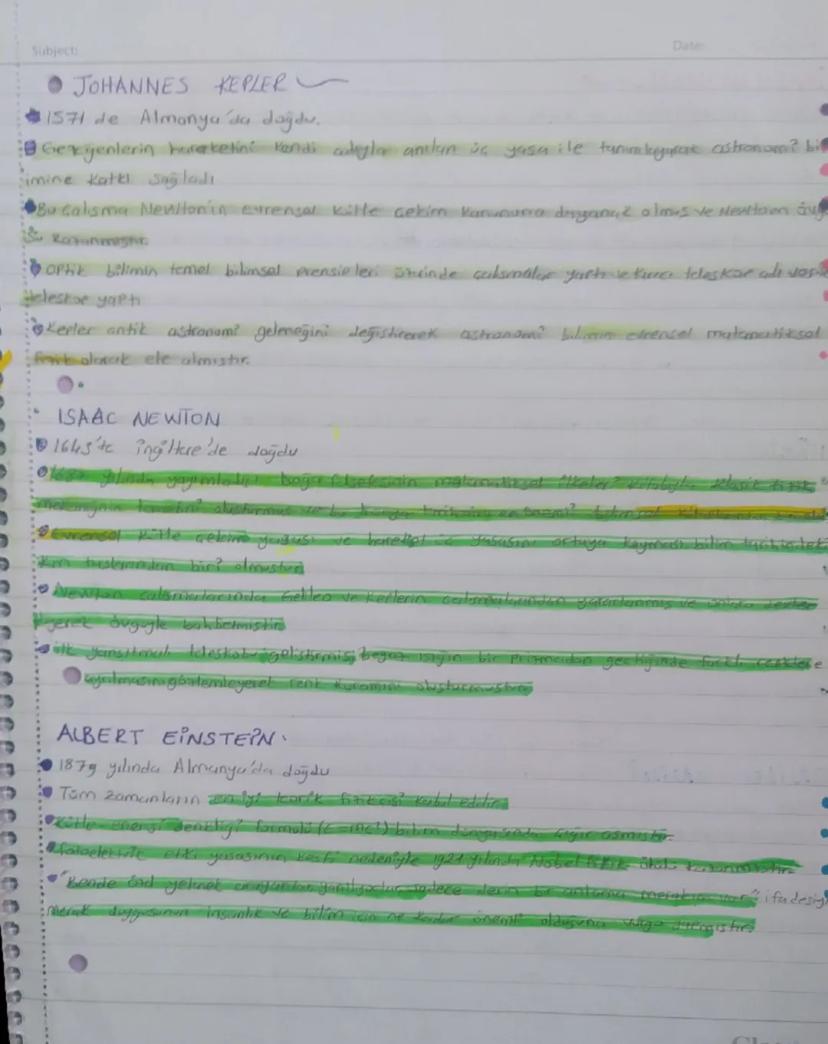 Subject:
Date:
JOHANNES KEPLER
1571 de Almanya'da doğdu.
Gezegenlerin hareketini kendi adıyla anılan üç yasa ile tanımlayarak astronomi bi
imine katkı sağladı
Bu çalışma Newton'in evrensel kütle çekim kanununa dayanak olmuş ve Newton
kazanmıştır.
optik bilimin temel bilimsel prensipleri üzerinde çalışmalar yaptı ve teleskop adı
teleskop yaptı
Kepler antik astronomi geleneğini değiştirerek astronomi bilimin evrensel matematiksel
olarak ele almıştır.
ISAAC NEWTON
1643'te ingiltere'de doğdu
1687 yılında yayımladığı Doğa felsefesinin matematiksel ilkeler kitabıyla klasik fizik
mekaniğinin temelini oluşturmuş ve
Evrensel kütle çekimi yasası ve hareket üç yasasını ortaya koyması bilim
taşlarından biri olmuştur
Newton çalışmalarında ve keplerin çalışmalarından yararlanmış ve
övgüyle bahsetmiştir
ilk yansıtmalı teleskobu geliştirmiş, beyaz ışığın bir prizmadan geçtiğinde farklı renklere
ayrılmasını gözlemleyerek renk kuramını oluşturmuştur
ALBERT EİNSTEİN.
1879 yılında Almanya'da doğdu
Tüm zamanların en iyi teorik fizikçisi kabul edilir
Kütle-enerji denkliği formülü (E=mc²) bilim dünyasında çığır açmıştır.
fotoelektrik etki yasasının keşfi nedeniyle 1921 yılında Nobel fizik ödülü kazanmıştır
"Bende özel yetenek arayanlar yanılıyorlar sadece derin bir anlama merakım var" ifadesiy
merak duygusunun insanlık ve bilim için ne kadar önemli olduğuna vurgu